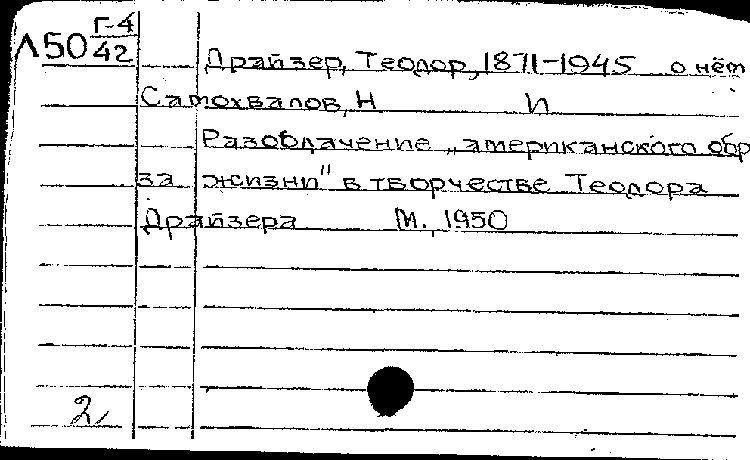 Г-4
Л50 42
Драйзер, Теодор, 1871-1945 о нём
Самохвалов, Н И
Разоблачение „американского обр
за жизни" в творчестве Теодора
Драйзера М., 1950
2